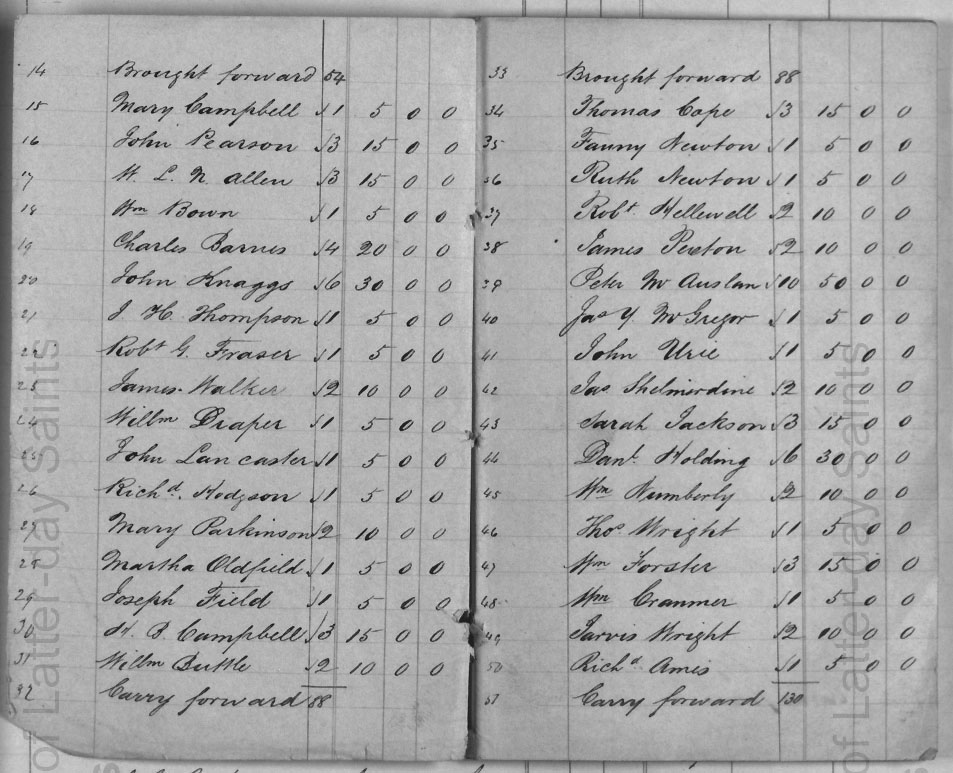 14 Brought forward 54
15 Mary Campbell √1 5 0 0
16 John Pearson √3 15 0 0
17 W. L. N. Allen √3 15 0 0
18 Wm Bown √1 5 0 0
19 Charles Barnes √4 20 0 0
20 John Knaggs √6 30 0 0
21 J. H. Thompson √1 5 0 0
22 Robt G. Fraser √1 5 0 0
23 James Walker √2 10 0 0
24 Willm Draper √1 5 0 0
25 John Lancaster √1 5 0 0
26 Richd. Hodgson √1 5 0 0
27 Mary Parkinson √2 10 0 0
28 Martha Oldfield √1 5 0 0
29 Joseph Field √1 5 0 0
30 H. B. Campbell √3 15 0 0
31 Willm Buttle √2 10 0 0
32 Carry forward 88
33 Brought forward 88
34 Thomas Cope √3 15 0 0
35 Fanny Newton √1 5 0 0
36 Ruth Newton √1 5 0 0
37 Robt. Hellewell √2 10 0 0
38 James Pexton √2 10 0 0
39 Peter Mc Auslan √10 50 0 0
40 Jas Y. McGregor √1 5 0 0
41 John Urie √1 5 0 0
42 Jas Shelmerdine √2 10 0 0
43 Sarah Jackson √3 15 0 0
44 Danl. Holding √6 30 0 0
45 Wm Numberly √2 10 0 0
46 Thos Wright √1 5 0 0
47 Wm Forster √3 15 0 0
48 Wm Cranmer √1 5 0 0
49 Jarvis Wright √2 10 0 0
50 Richd Ames √1 5 0 0
51 Carry forward 130
of Latter-day Saints
of Latter-day Saints